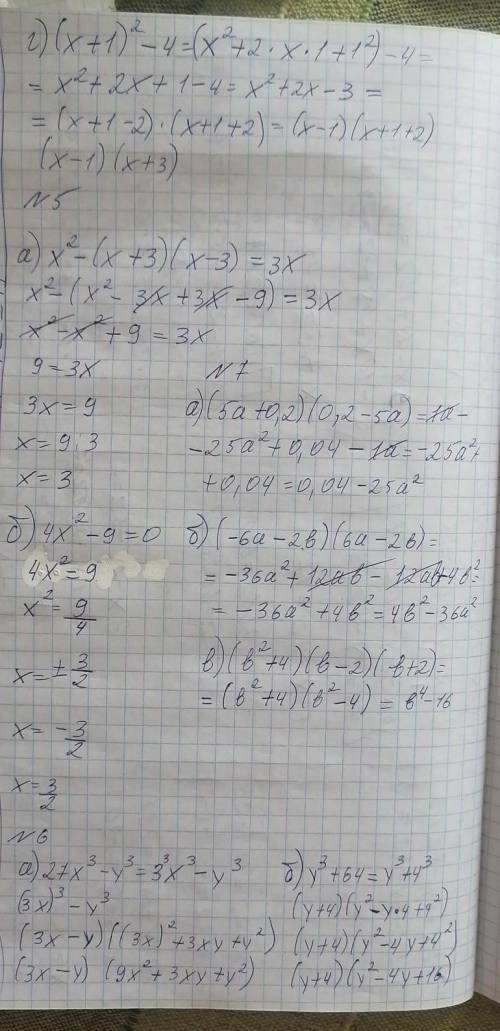 г) (x+1)² - 4 = (x² + 2 · x · 1 + 1²) - 4 =
= x² + 2x + 1 - 4 = x² + 2x - 3 =
= (x+1-2) · (x+1+2) = (x-1) (x+1+2)
(x-1) (x+3)
N5
а) x² - (x+3) (x-3) = 3x
x² - (x² - 3x + 3x - 9) = 3x
x² - x² + 9 = 3x
9 = 3x
3x = 9
x = 9:3
x = 3
б) 4x² - 9 = 0
4x² = 9
x² = 9/4
x = ± 3/2
x = - 3/2
x = 3/2
N7
а) (5a+0,2) (0,2-5a) = 1a -
- 25a² + 0,04 - 1a = -25a² +
+ 0,04 = 0,04 - 25a²
б) (-6a-2в) (6a-2в) =
= -36a² + 12aв - 12aв + 4в² =
= -36a² + 4в² = 4в² - 36a²
в) (в²+4) (в-2) (в+2) =
= (в²+4) (в²-4) = в⁴-16
N6
а) 27x³ - y³ = 3³x³ - y³
(3x)³ - y³
(3x-y) ((3x)² + 3xy + y²)
(3x-y) (9x² + 3xy + y²)
б) y³ + 64 = y³ + 4³
(y+4) (y² - y·4 + 4²)
(y+4) (y² - 4y + 4²)
(y+4) (y² - 4y + 16)